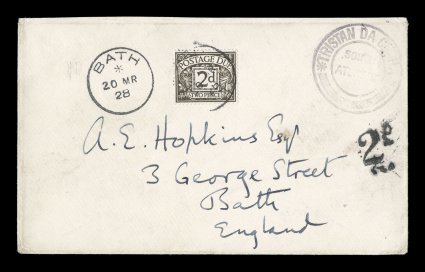 BATH
20 MR
28
POSTAGE DUE
2d
TWO PENCE
TRISTAN DA
SOU
AT
2d
A. E. Hopkins Esq
3 George Street
Bath
England